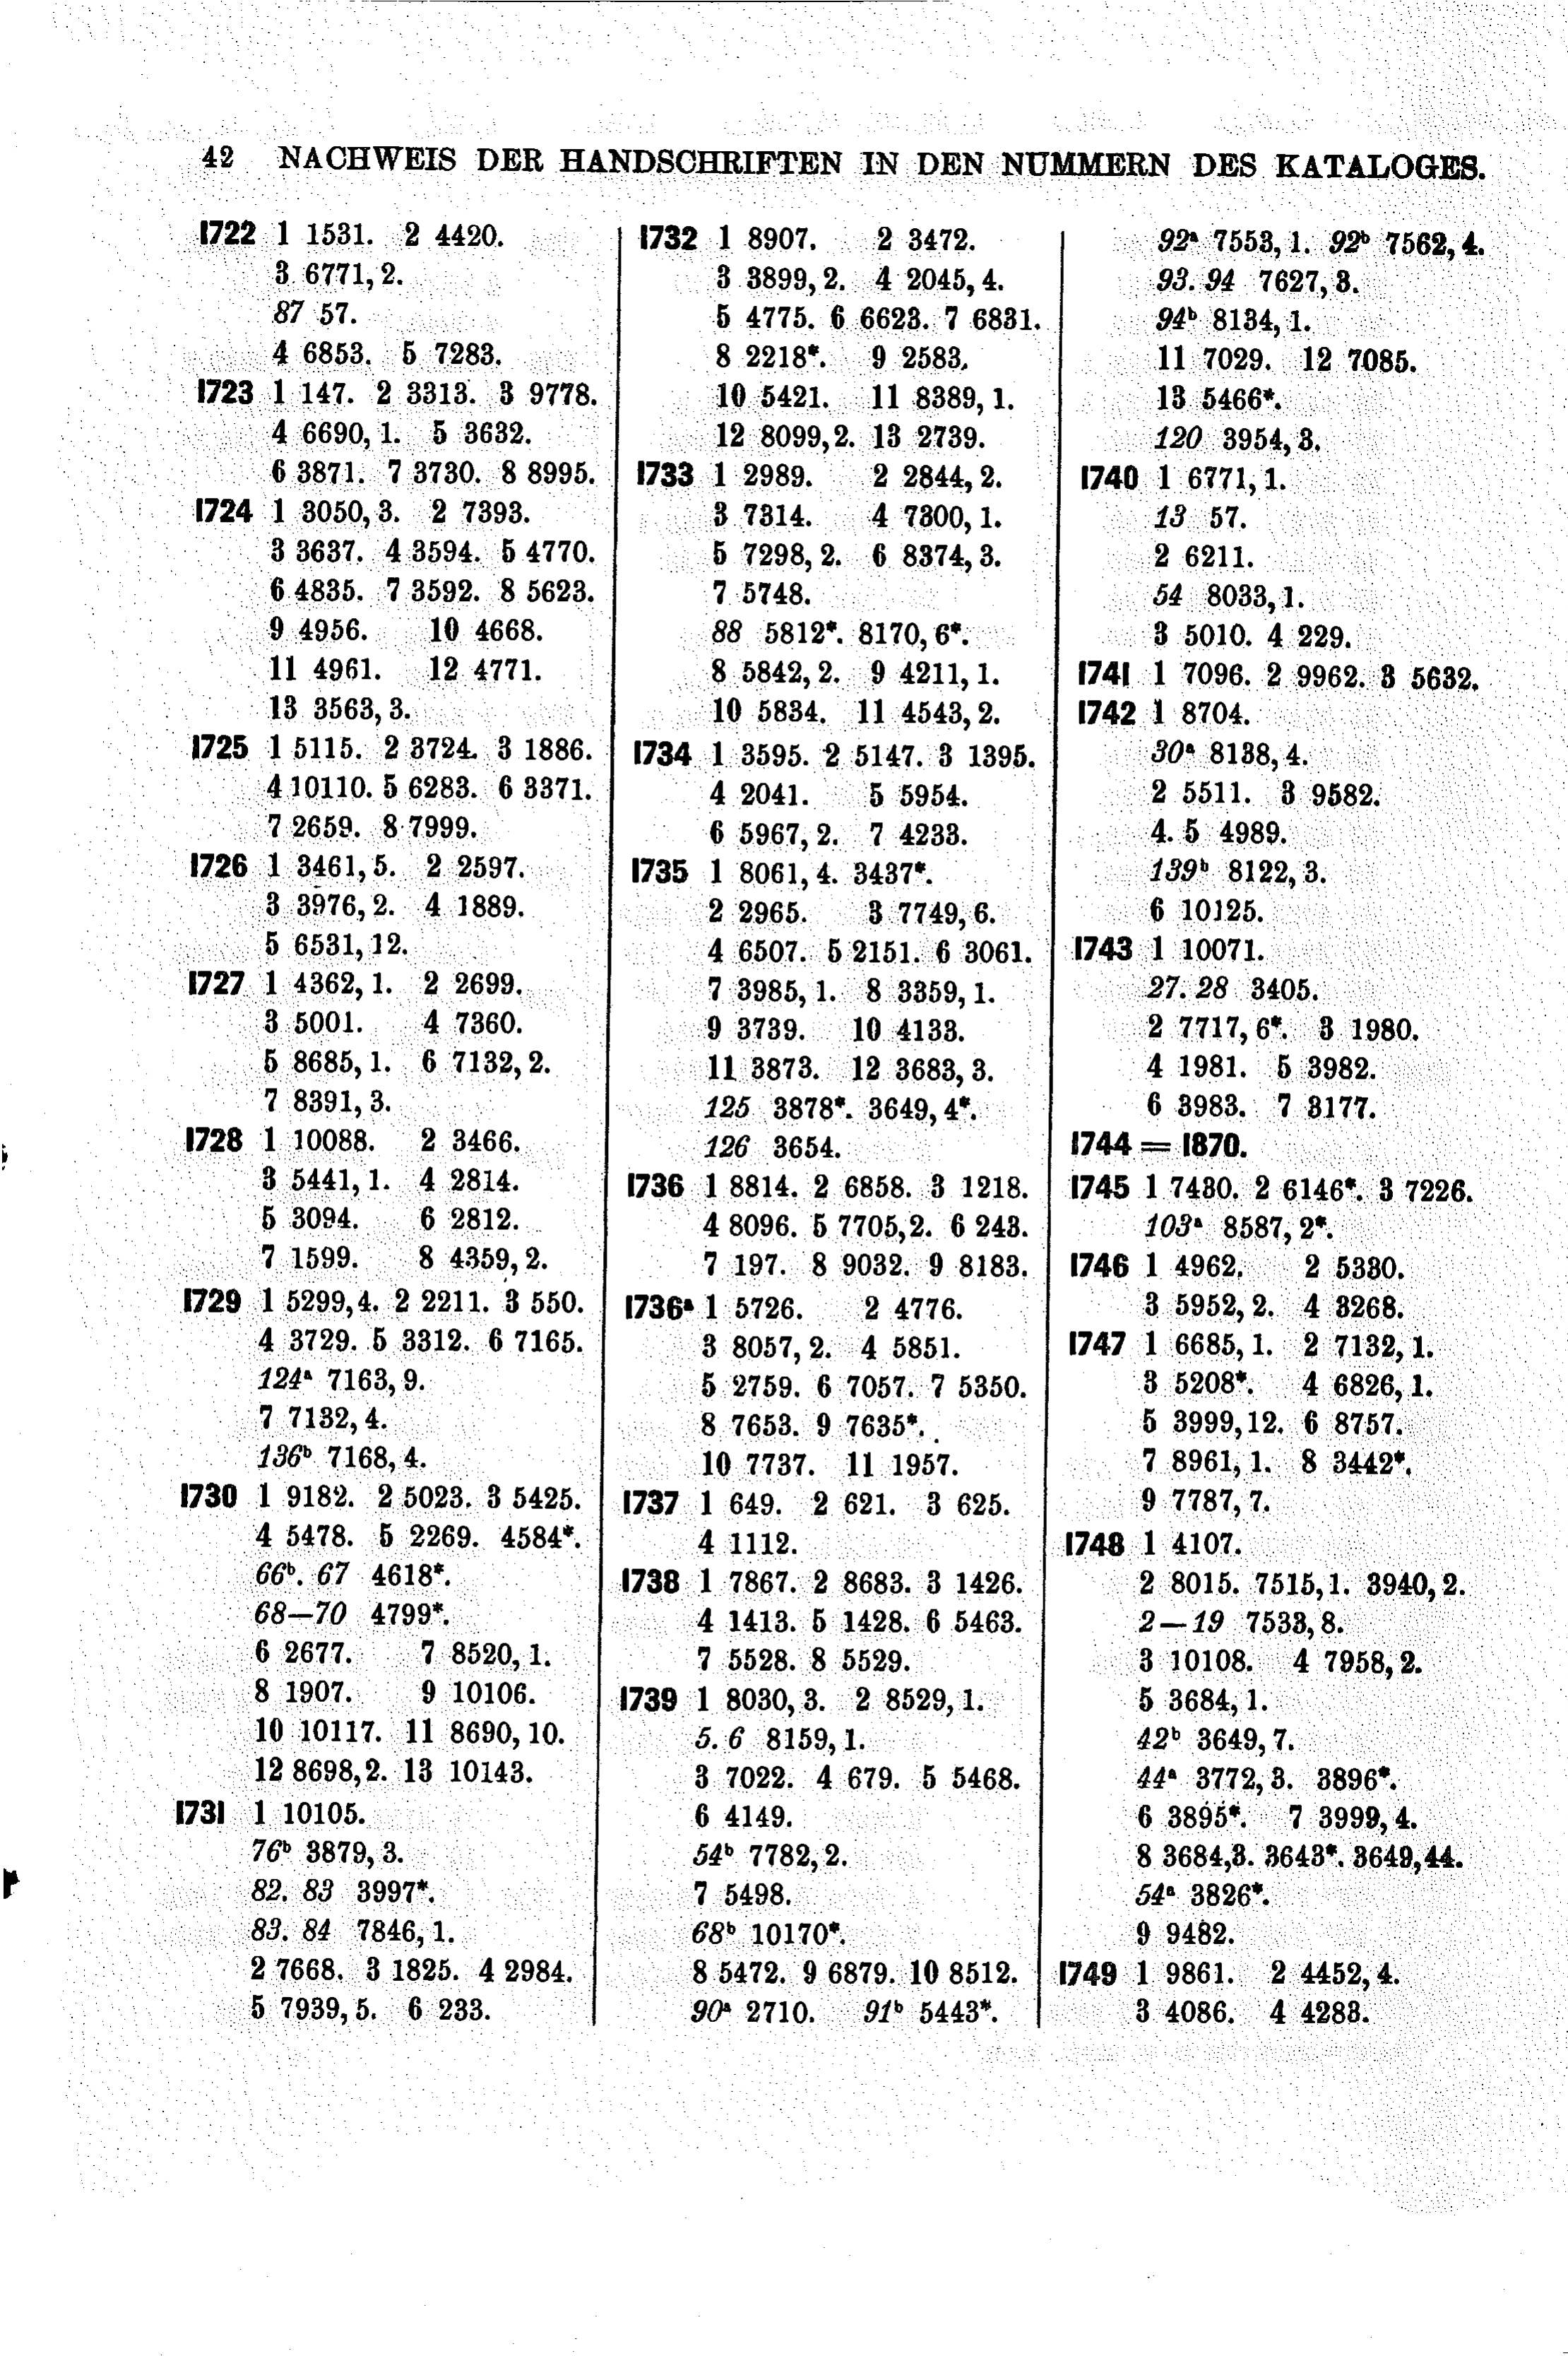 42 NACHWEIS DER HANDSCHRIFTEN IN DEN NUMMERN DES KATALOGES.
1722 1 1531. 2 4420.
3 6771, 2.
87 57.
4 6853. 5 7283.
1723 1 147. 2 3313. 3 9778.
4 6690, 1. 5 3632.
6 3871. 7 3730. 8 8995.
1724 1 3050, 3. 2 7393.
3 3637. 4 3594. 5 4770.
6 4835. 7 3592. 8 5623.
9 4956. 10 4668.
11 4961. 12 4771.
13 3563, 3.
1725 1 5115. 2 3724. 3 1886.
4 10110. 5 6283. 6 3371.
7 2659. 8 7999.
1726 1 3461, 5. 2 2597.
3 3976, 2. 4 1889.
5 6531, 12.
1727 1 4362, 1. 2 2699.
3 5001. 4 7360.
5 8685, 1. 6 7132, 2.
7 8391, 3.
1728 1 10088. 2 3466.
3 5441, 1. 4 2814.
5 3094. 6 2812.
7 1599. 8 4359, 2.
1729 1 5299, 4. 2 2211. 3 550.
4 3729. 5 3312. 6 7165.
124ᵃ 7163, 9.
7 7132, 4.
136ᵇ 7168, 4.
1730 1 9182. 2 5023. 3 5425.
4 5478. 5 2269. 4584*.
66ᵇ. 67 4618*.
68—70 4799*.
6 2677. 7 8520, 1.
8 1907. 9 10106.
10 10117. 11 8690, 10.
12 8698, 2. 13 10143.
1731 1 10105.
76ᵇ 3879, 3.
82. 83 3997*.
83. 84 7846, 1.
2 7668. 3 1825. 4 2984.
5 7939, 5. 6 233.
1732 1 8907. 2 3472.
3 3899, 2. 4 2045, 4.
5 4775. 6 6623. 7 6831.
8 2218*. 9 2583.
10 5421. 11 8389, 1.
12 8099, 2. 13 2739.
1733 1 2989. 2 2844, 2.
3 7314. 4 7300, 1.
5 7298, 2. 6 8374, 3.
7 5748.
88 5812*. 8170, 6*.
8 5842, 2. 9 4211, 1.
10 5834. 11 4543, 2.
1734 1 3595. 2 5147. 3 1395.
4 2041. 5 5954.
6 5967, 2. 7 4233.
1735 1 8061, 4. 3437*.
2 2965. 3 7749, 6.
4 6507. 5 2151. 6 3061.
7 3985, 1. 8 3359, 1.
9 3739. 10 4133.
11 3873. 12 3683, 3.
125 3878*. 3649, 4*.
126 3654.
1736 1 8814. 2 6858. 3 1218.
4 8096. 5 7705, 2. 6 243.
7 197. 8 9032. 9 8183.
1736ᵃ 1 5726. 2 4776.
3 8057, 2. 4 5851.
5 2759. 6 7057. 7 5350.
8 7653. 9 7635*.
10 7737. 11 1957.
1737 1 649. 2 621. 3 625.
4 1112.
1738 1 7867. 2 8683. 3 1426.
4 1413. 5 1428. 6 5463.
7 5528. 8 5529.
1739 1 8030, 3. 2 8529, 1.
5. 6 8159, 1.
3 7022. 4 679. 5 5468.
6 4149.
54ᵇ 7782, 2.
7 5498.
68ᵇ 10170*.
8 5472. 9 6879. 10 8512.
90ᵃ 2710. 91ᵇ 5443*.
92ᵃ 7553, 1. 92ᵇ 7562, 4.
93. 94 7627, 3.
94ᵇ 8134, 1.
11 7029. 12 7085.
13 5466*.
120 3954, 3.
1740 1 6771, 1.
13 57.
2 6211.
54 8033, 1.
3 5010. 4 229.
1741 1 7096. 2 9962. 3 5632.
1742 1 8704.
30ᵃ 8138, 4.
2 5511. 3 9582.
4. 5 4989.
139ᵇ 8122, 3.
6 10125.
1743 1 10071.
27. 28 3405.
2 7717, 6*. 3 1980.
4 1981. 5 3982.
6 3983. 7 3177.
1744 = 1870.
1745 1 7430. 2 6146*. 3 7226.
103ᵃ 8587, 2*.
1746 1 4962. 2 5330.
3 5952, 2. 4 3268.
1747 1 6685, 1. 2 7132, 1.
3 5208*. 4 6826, 1.
5 3999, 12. 6 8757.
7 8961, 1. 8 3442*.
9 7787, 7.
1748 1 4107.
2 8015. 7515, 1. 3940, 2.
2—19 7533, 8.
3 10108. 4 7958, 2.
5 3684, 1.
42ᵇ 3649, 7.
44ᵃ 3772, 3. 3896*.
6 3895*. 7 3999, 4.
8 3684, 3. 3643*. 3649, 44.
54ᵃ 3826*.
9 9482.
1749 1 9861. 2 4452, 4.
3 4086. 4 4283.